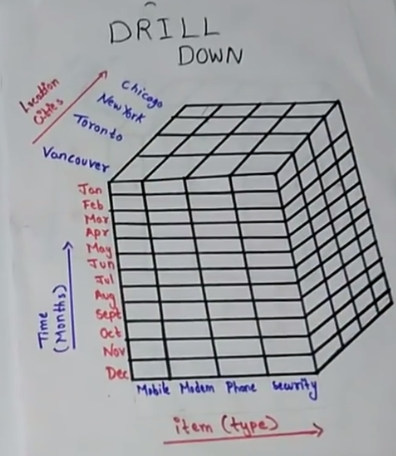 DRILL
DOWN
Location
Cities
Chicago
NewYork
Toronto
Vancouver
Jan
Feb
Mar
Apr
May
Jun
Jul
Aug
Sept
Oct
Nov
Dec
Time
(Months)
Mobile Modem Phone Security
item (type)